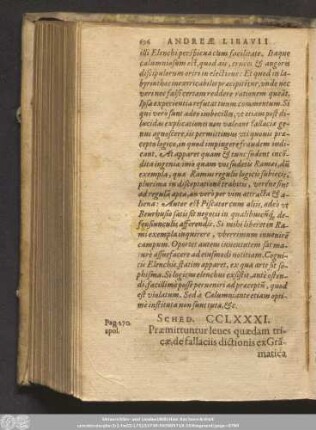 696 ANDREÆ LIBAVII
illi Elenchi perspicua cum facilitate. Itaque
calumniosum est, quod ais, crucis & angoris
discipulorum oriri in electione: Et quod in la-
byrinthos inextricabiles præcipitur, unde nec
veri nec falsi certam reddere rationem queāt.
Ipsa experientia refutat tuum comentum. Si
qui vero sunt adeo imbecilles, ut etiam post di-
lucidas explicationes non valeant fallaciæ ge-
nus agnoscere, iis permittimus ut
cepto logico, in quod impingere fraudem indi-
cent. At apparet quam & tunc sudent
dita ingenia: imo quam vos sudetis Ramei, dū
exempla, quæ Rameis regulis logicis subiecta,
plurima in disceptatione trahitis, utrūne sint
ad regulā apta, an vero per vim attracta & a-
liena: Autor est Piscator cum aliis, adeo ut
Beurhusio satis sit negotii in quæstionibus, de-
fensiunculis afferendis. Si mihi liberet in Ra-
mi exempla inquirere, uberrimum invenirē
campum. Oportet autem inventum sat ma-
turè assuefacere ad eiusmodi
tis Elenchis, statim apparet, ex qua arte sit so-
phisma. Si logicus elenchus exsistit, antè osten-
di, facillimè posse perveniri ad præceptū, quod
est violatum. Sed a Calumniante etiam opti-
mè instituta non sunt tuta. &c.
Pag. 270.
apol.
SCHED. CCLXXXI.
Præmittuntur leues quædam tri-
cæ, de fallaciis dictionis ex Grā-
matica